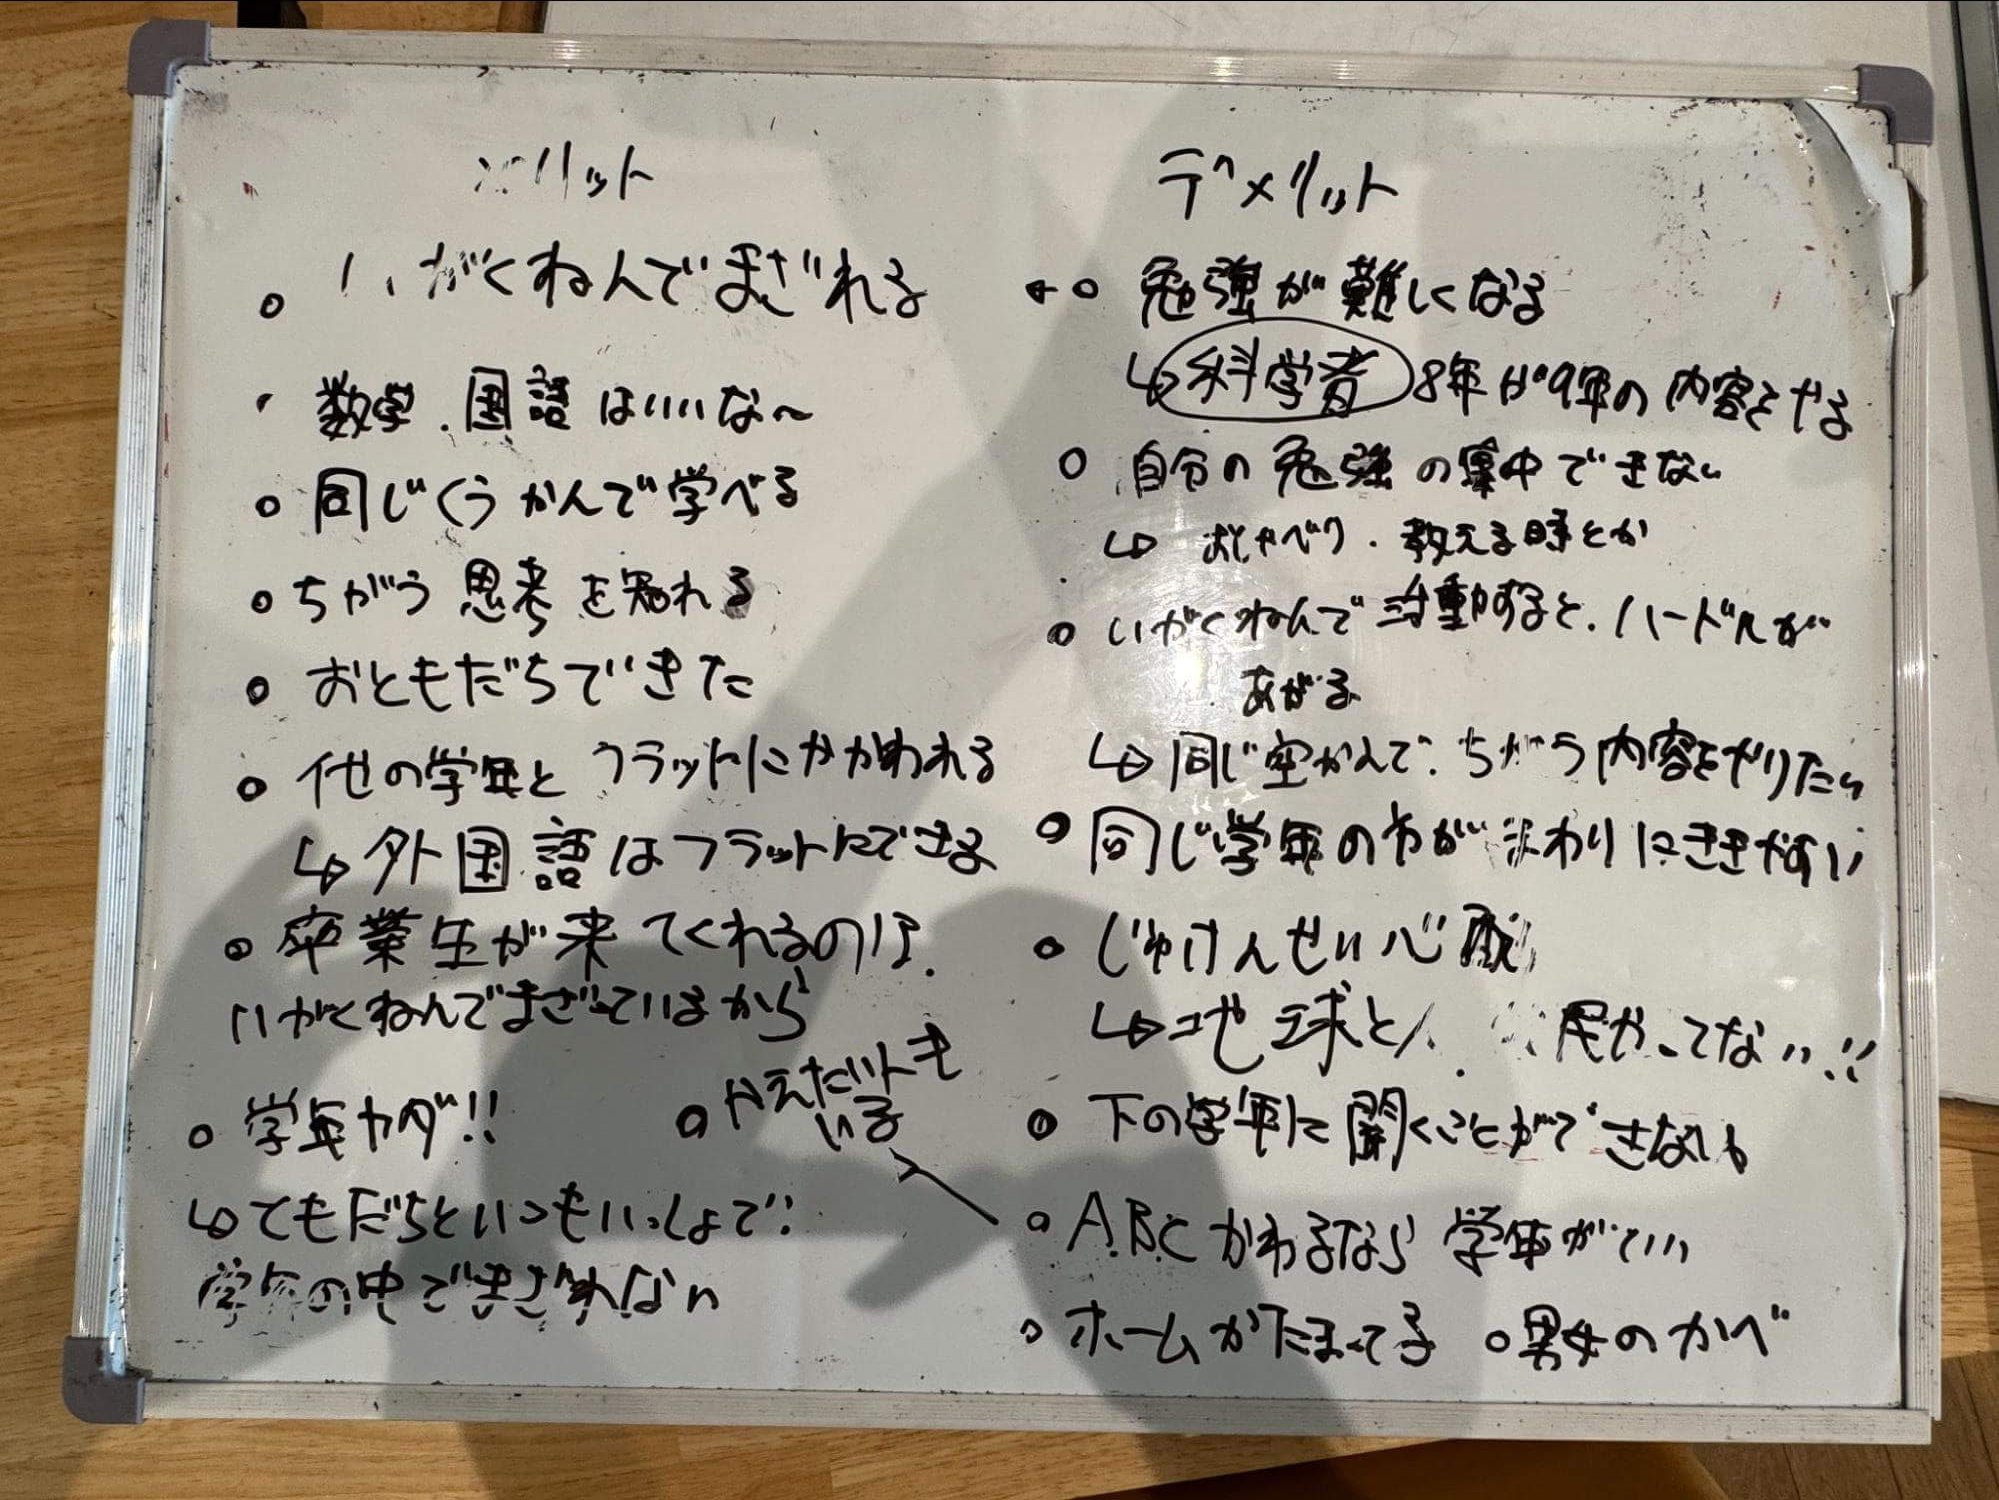 メリット
いがくねんでまざれる
数学.国語はいいな〜
同じくうかんで学べる
ちがう思考を知れる
おともだちできた
他の学年とフラットにかかわれる
↳外国語はフラットにできる
卒業生が来てくれるのは、
いがくねんでまざっているから
学年カダ!!
かえたい人も
いる
↳ともだちといつもいっしょで
学年の中でまざれない
デメリット
勉強が難しくなる
↳科学者 8年が9年の内容をやる
自分の勉強の集中できない
↳おしゃべり.教える時とか
いがくねんで活動すると、ハードルが
あがる
↳同じ空かんで、ちがう内容をやりたい
同じ学年の方がまわりにききやすい
じゅけんせい心配
↳地球と 民かってない!!
下の学年に聞くことができない
A.B.Cかわるなら学年がいい
ホームかたまってる
男女のかべ